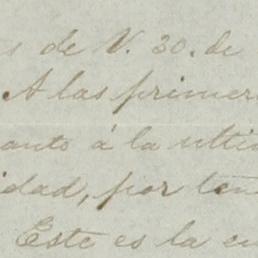 s de V. 30. de
A las primer
anto á la ulti
idad, por ten
Este es la cu